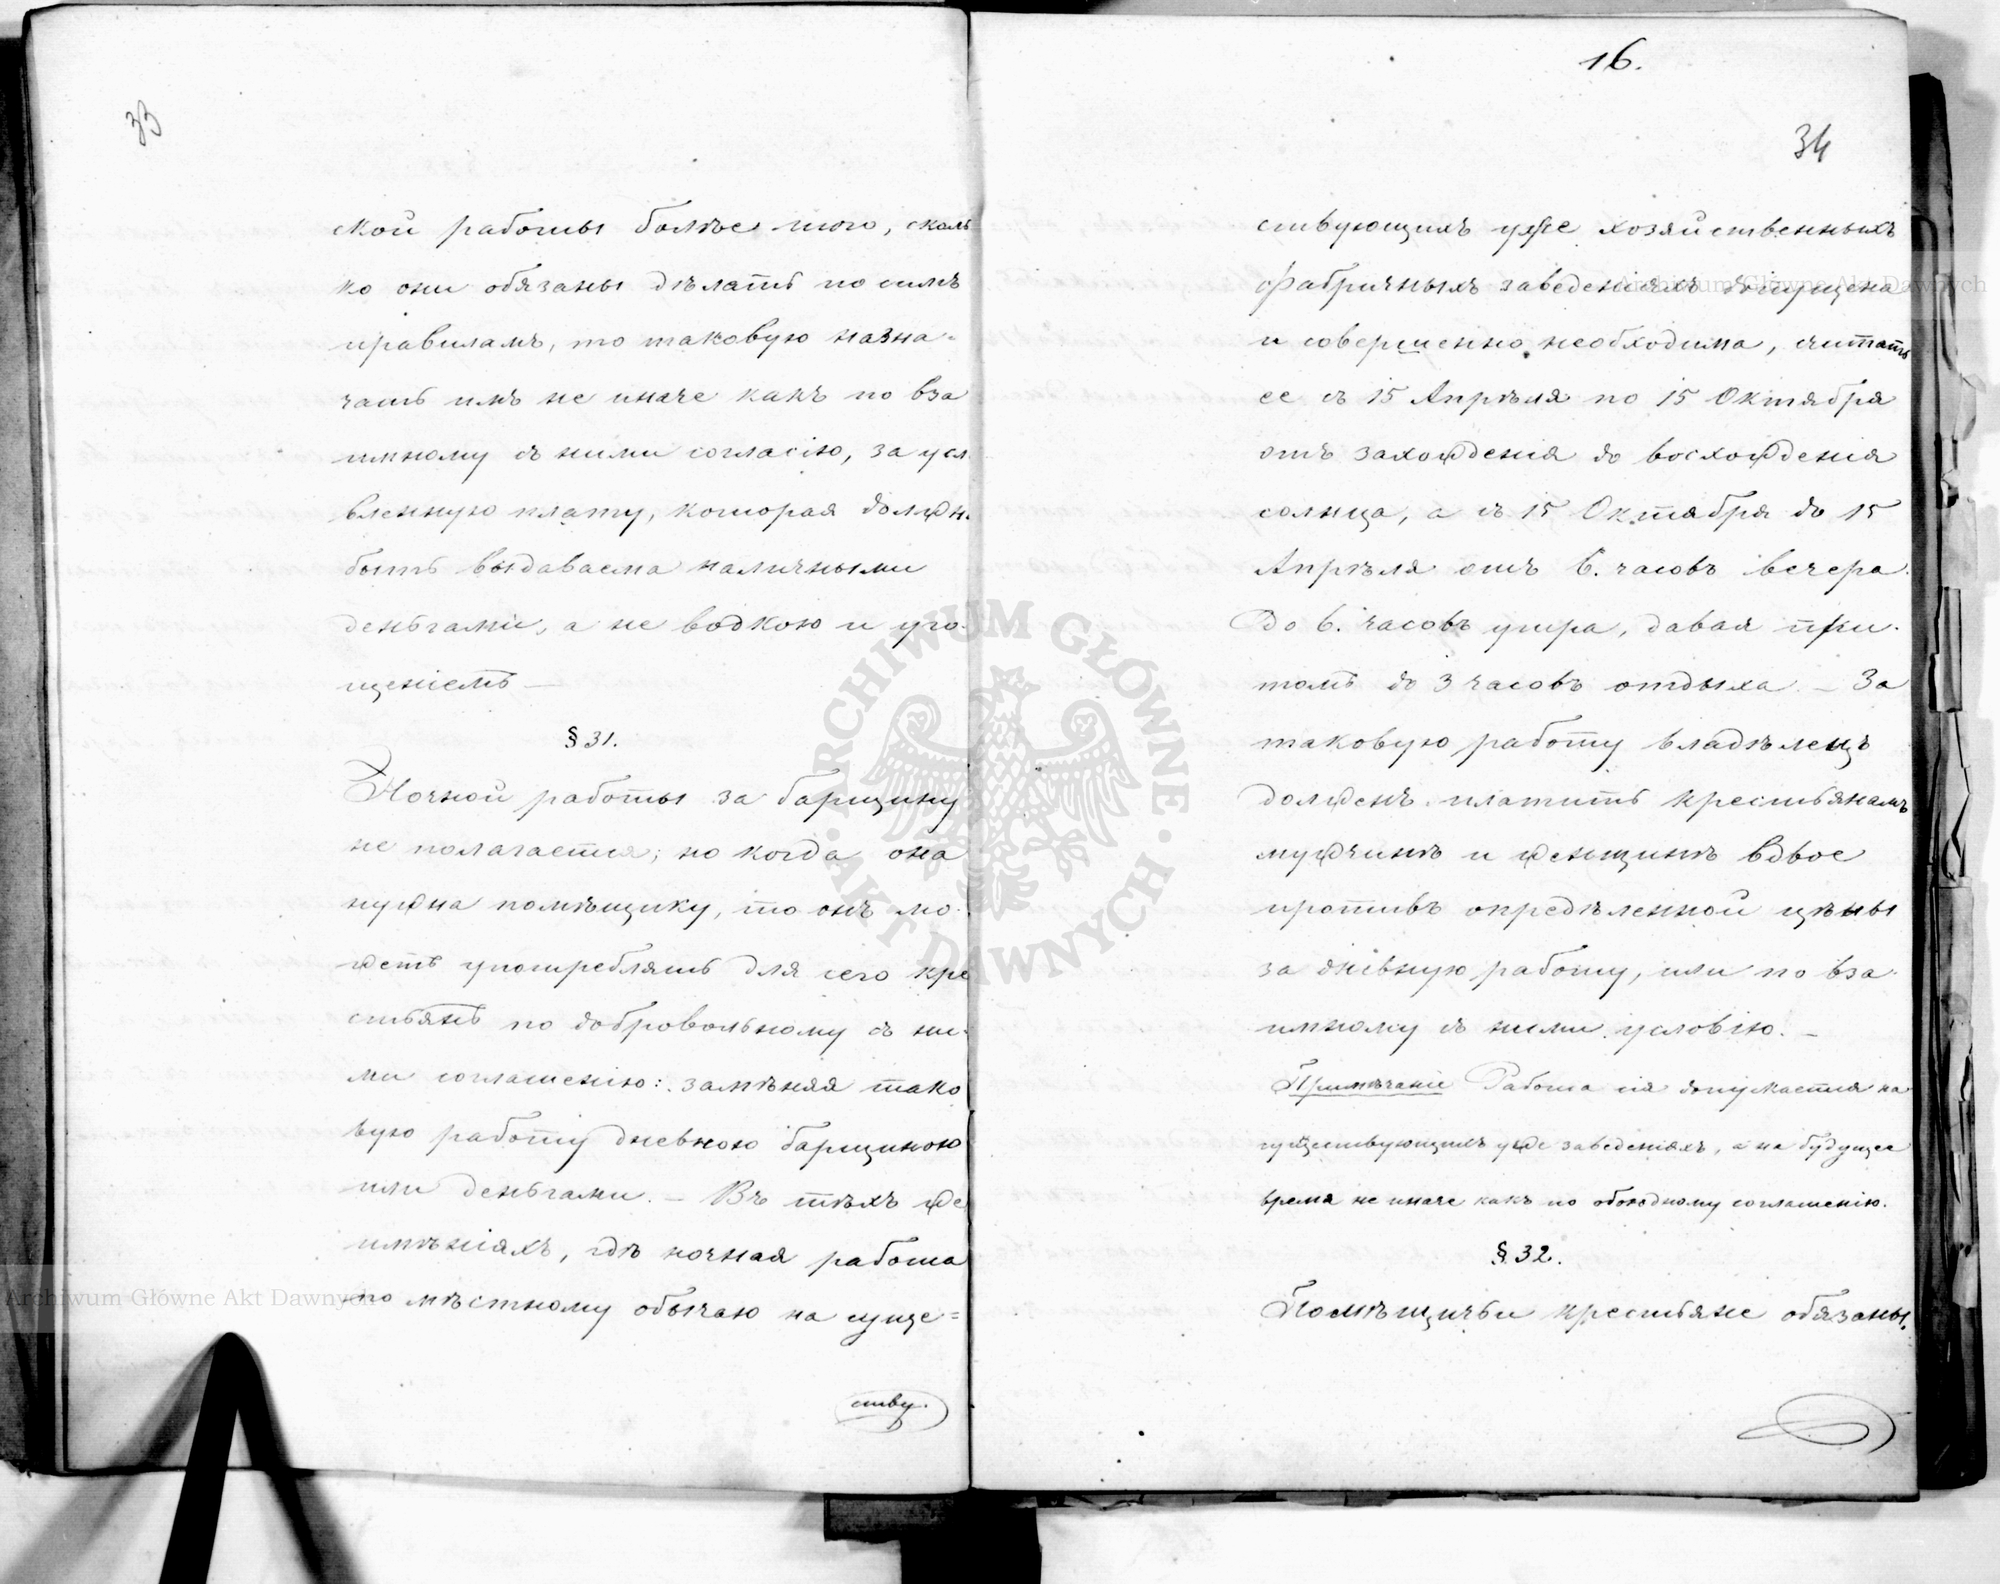 33
ской работы болѣе того, сколь
ко они обязаны дѣлать по симъ
правиламъ, то таковую назна-
чать имъ не иначе какъ по вза
имному съ ними согласію, за усл
вленную плату, которая должн
быть выдаваема наличными
деньгами, а не водкою и уго-
щеніемъ —
§ 31.
Ночной работы за барщину
не полагается; но когда она
нужна помѣщику, то онъ мо-
жетъ употреблять для сего кре
стьянъ по добровольному съ ни-
ми соглашенію: замѣняя тако
вую работу дневною барщиною
или деньгами. — Въ тѣхъ же
имѣніяхъ, гдѣ ночная работа
по мѣстному обычаю на суще=
ству.
16.
34
ствующихъ уже хозяйственныхъ
фабричныхъ заведеніяхъ допущена
и совершенно необходима, считать
ее съ 15 Апрѣля по 15 Октября
отъ захожденія до восхожденія
солнца, а съ 15 Октября до 15
Апрѣля отъ 6. часовъ вечера
до 6. часовъ утра, давая при-
томъ до 3 часовъ отдыха — За
таковую работу владѣлецъ
долженъ платить крестьянамъ
мужчинѣ и женщинѣ вдвое
противъ опредѣленной цѣны
за дневную работу, или по вза-
имному съ ними условію. —
Примѣчаніе Работа сія допускается на
существующихъ уже заведеніяхъ, а на будущее
время не иначе какъ по обоюдному соглашенію.
§ 32.
Помѣщичьи крестьяне обязаны
ARCHIWUM GŁÓWNE AKT DAWNYCH
Archiwum Główne Akt Dawnych
Archiwum Główne Akt Dawnych